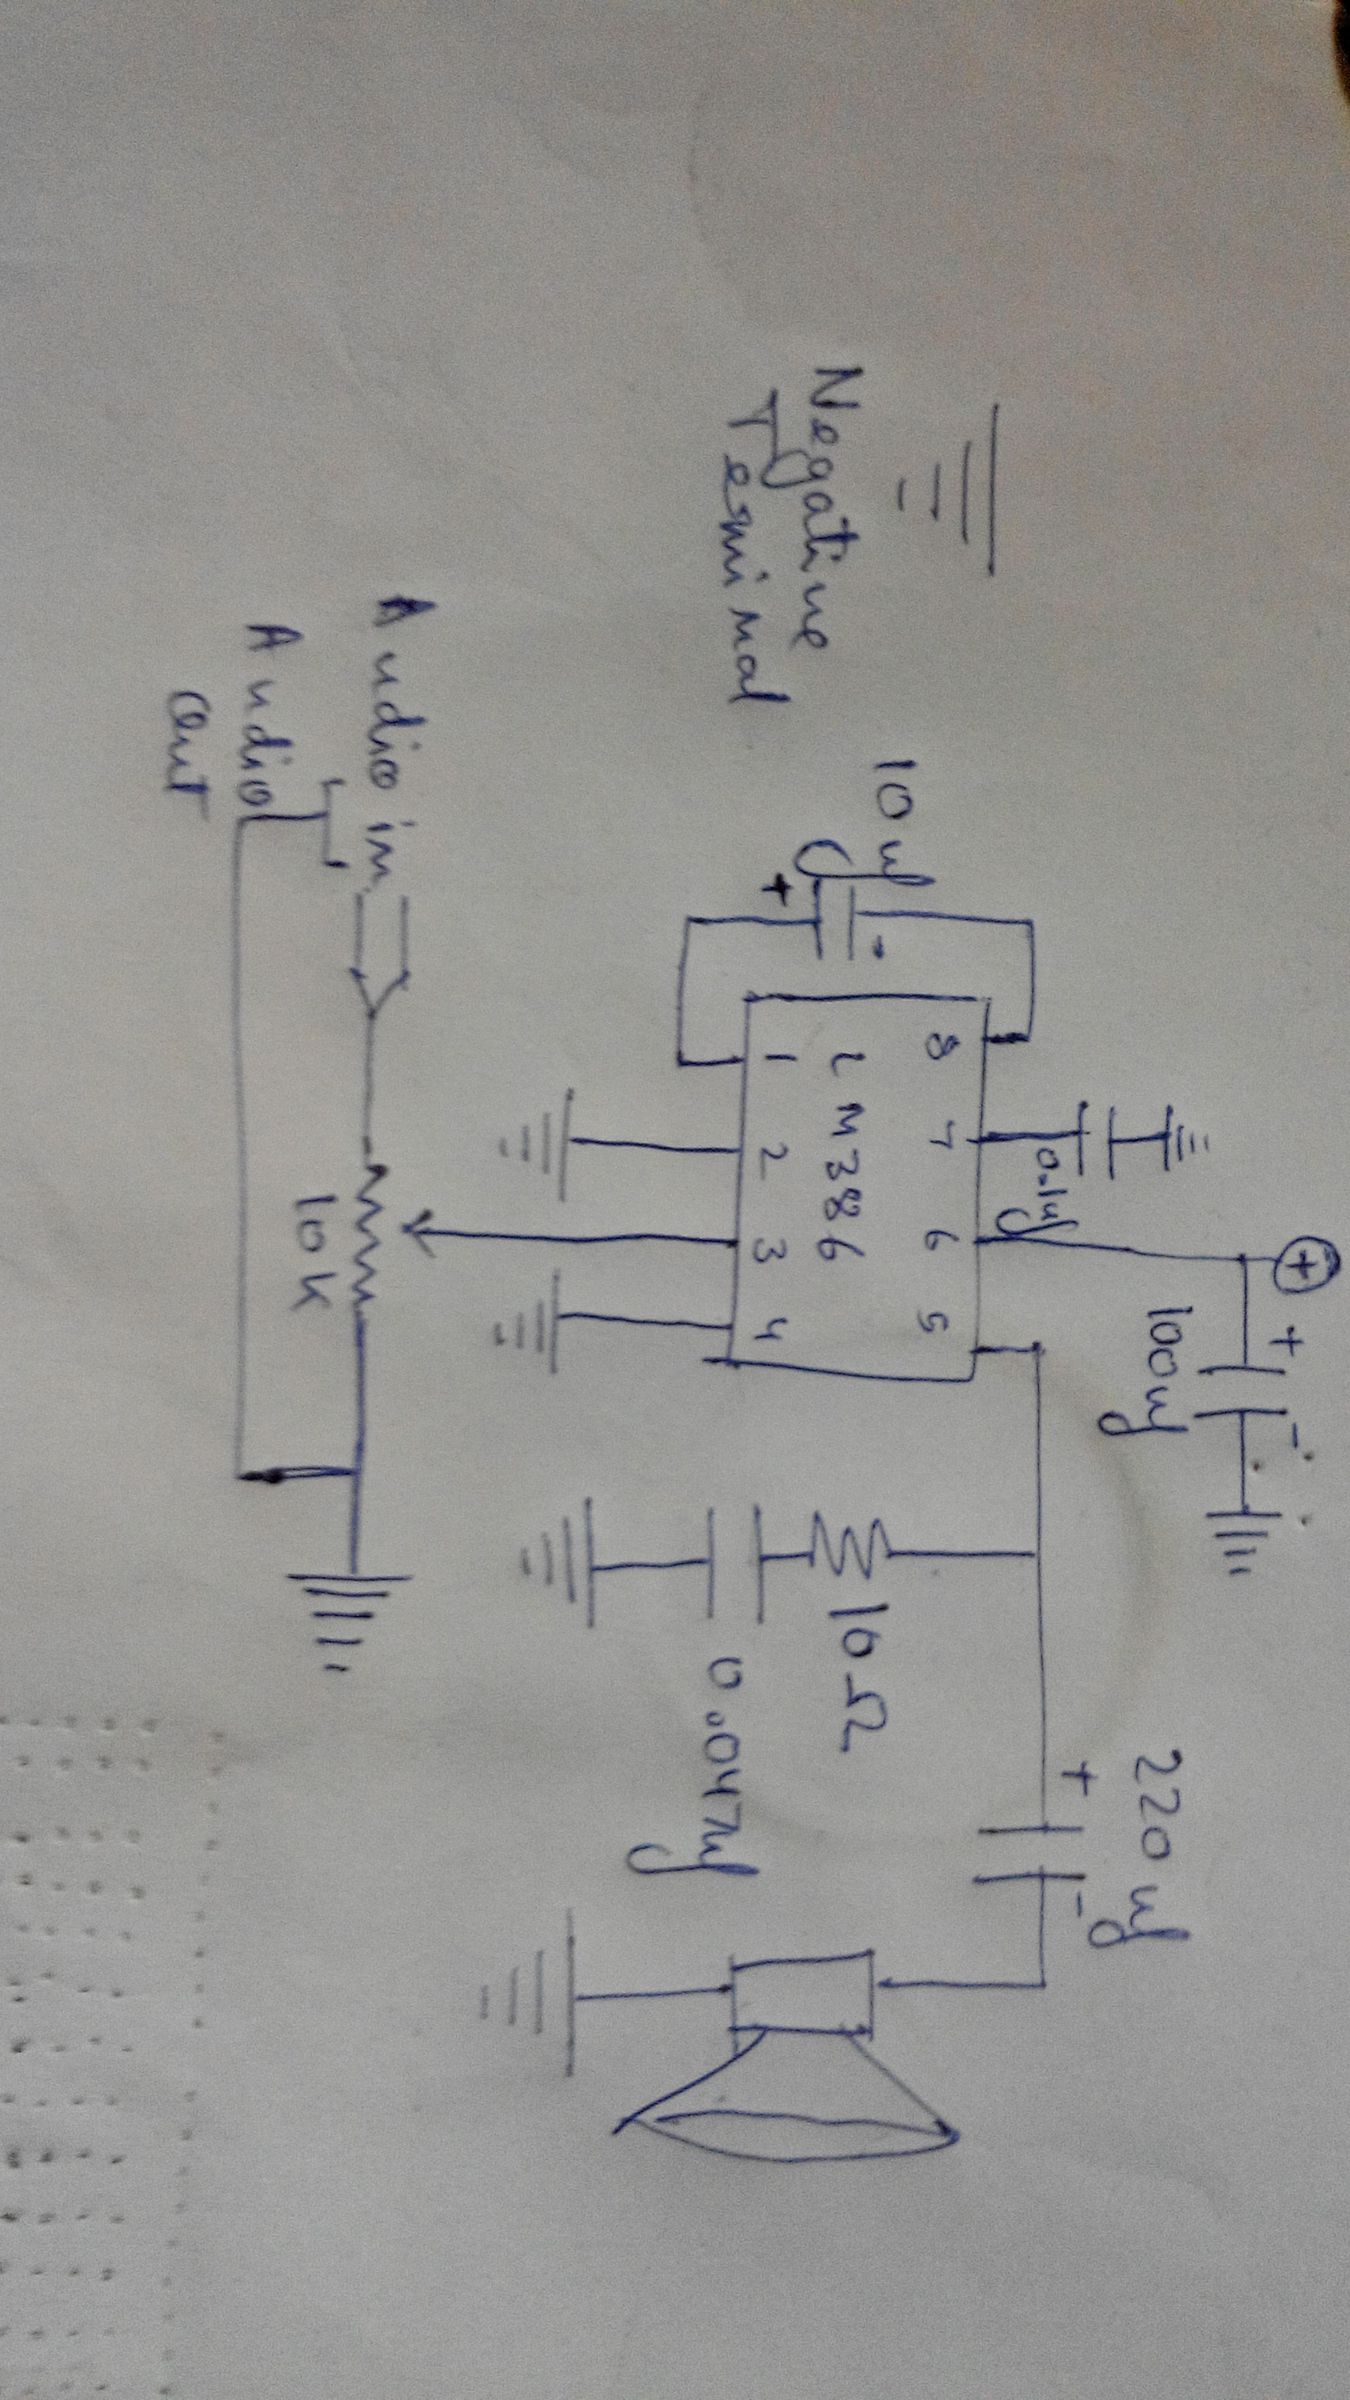 Negative
Terminal
10uf
+
-
8
7
6
5
LM386
1
2
3
4
0.1uf
+
+
-
100uf
220uf
+
-
10Ω
0.047uf
Audio in
Audio
out
10K